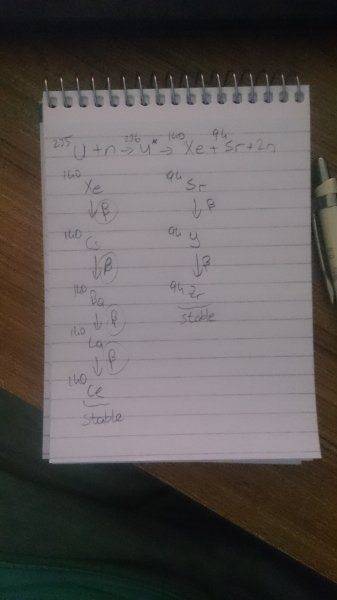 ²³⁵U + n → ²³⁶U* → ¹⁴⁰Xe + ⁹⁴Sr + 2n
¹⁴⁰Xe
↓ β
¹⁴⁰Cs
↓ β
¹⁴⁰Ba
↓ β
¹⁴⁰La
↓ β
¹⁴⁰Ce
stable
⁹⁴Sr
↓ β
⁹⁴Y
↓ β
⁹⁴Zr
stable